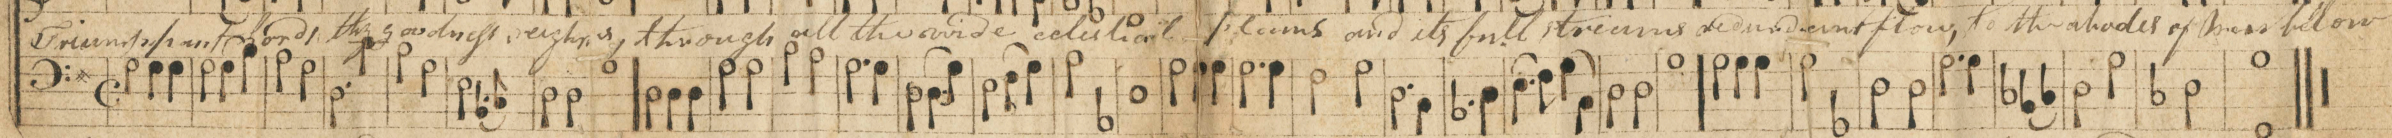 Triumphant Lord, thy goodness reigns, through all the wide celestial plains and its full streams redundant flow, to the abodes of men below